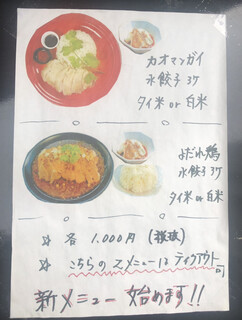 カオマンガイ
水餃子 3ケ
タイ米 or 白米
よだれ鶏
水餃子 3ケ
タイ米 or 白米
☆ 各 1.000円 (税抜)
☆ こちらの2メニューはテイクアウト可
新メニュー 始めます!!